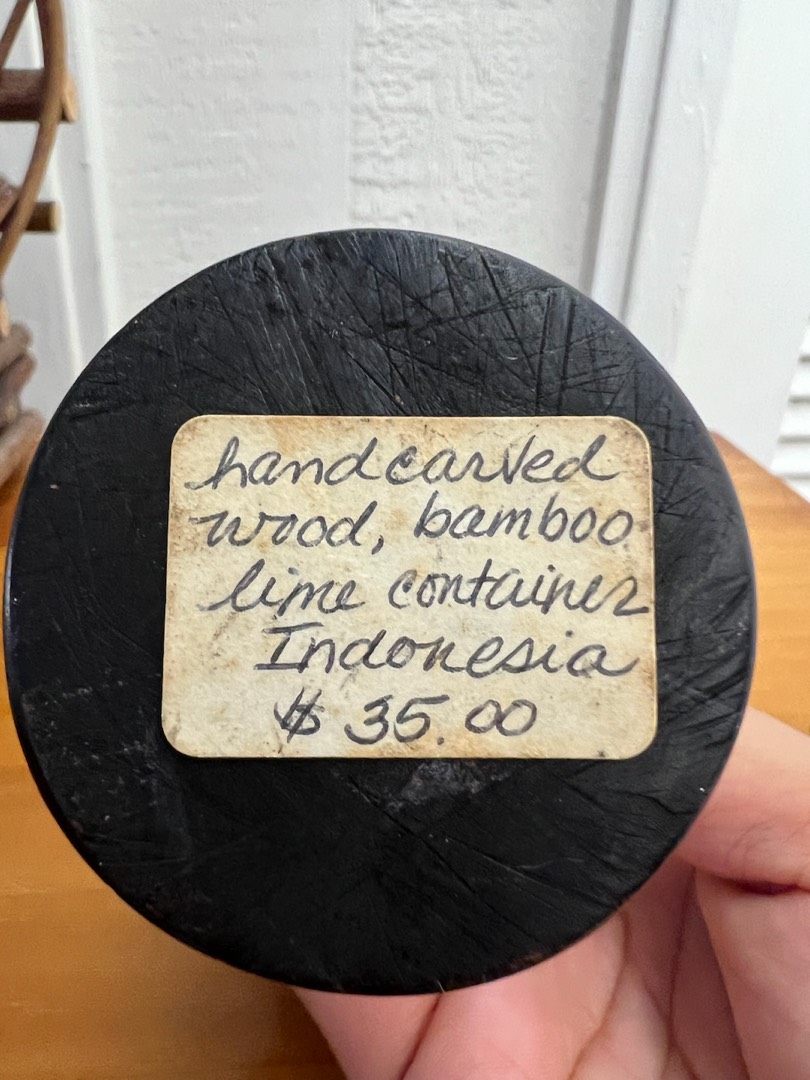 hand carved
wood, bamboo
lime container
Indonesia
$ 35.00